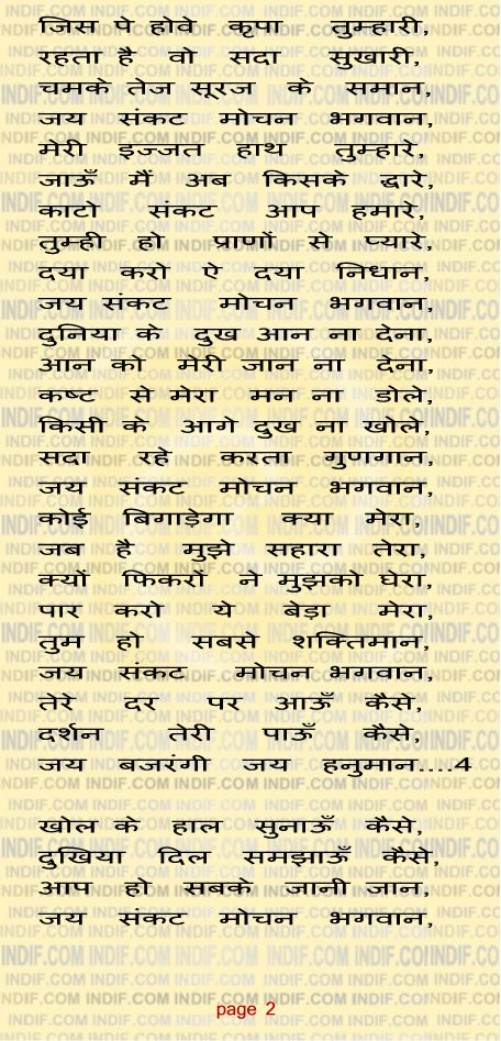 जिस पे होवे कृपा तुम्हारी,
रहता है वो सदा सुखारी,
चमके तेज सूरज के समान,
जय संकट मोचन भगवान,
मेरी इज्जत हाथ तुम्हारे,
जाऊँ मैं अब किसके द्वारे,
काटो संकट आप हमारे,
तुम्ही हो प्राणों से प्यारे,
दया करो ऐ दया निधान,
जय संकट मोचन भगवान,
दुनिया के दुख आन ना देना,
आन को मेरी जान ना देना,
कष्ट से मेरा मन ना डोले,
किसी के आगे दुख ना खोले,
सदा रहे करता गुणगान,
जय संकट मोचन भगवान,
कोई बिगाड़ेगा क्या मेरा,
जब है मुझे सहारा तेरा,
क्यों फिकरों ने मुझको घेरा,
पार करो ये बेड़ा मेरा,
तुम हो सबसे शक्तिमान,
जय संकट मोचन भगवान,
तेरे दर पर आऊँ कैसे,
दर्शन तेरी पाऊँ कैसे,
जय बजरंगी जय हनुमान....4
खोल के हाल सुनाऊँ कैसे,
दुखिया दिल समझाऊँ कैसे,
आप हो सबके जानी जान,
जय संकट मोचन भगवान,
page 2